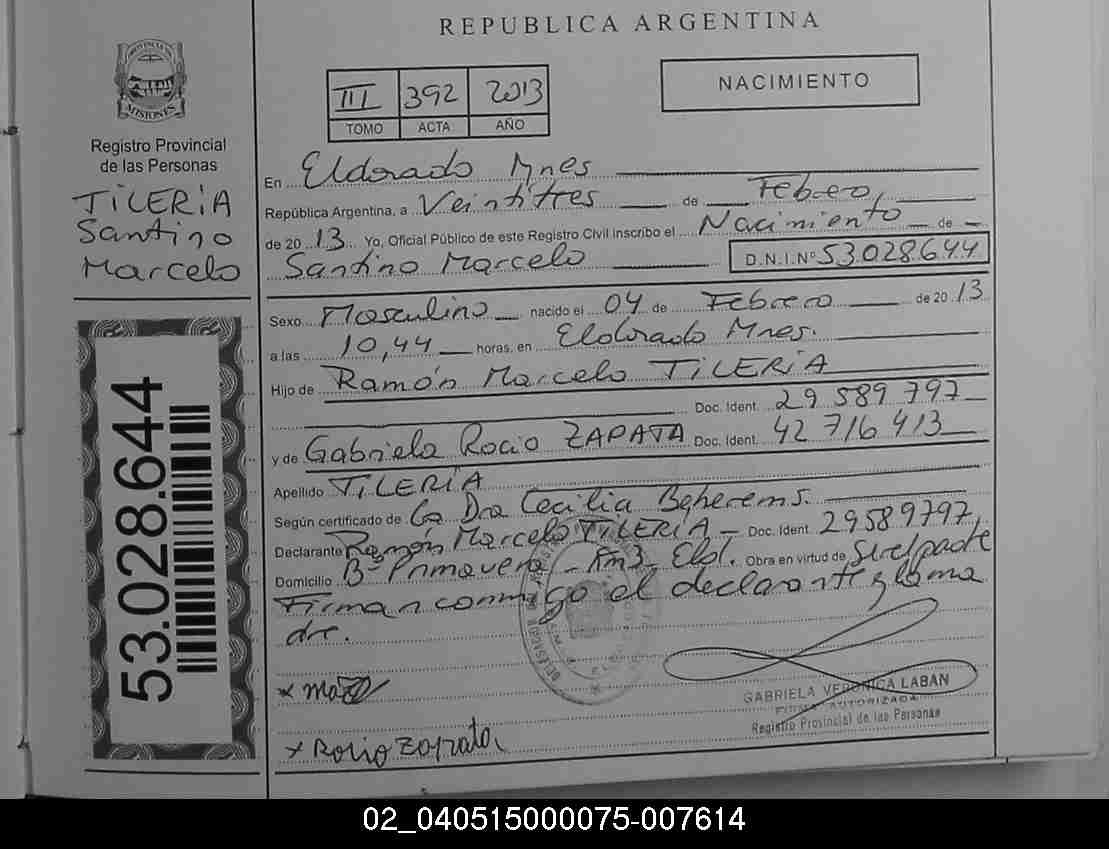 REPUBLICA ARGENTINA
PROVINCIA DE
MISIONES
Registro Provincial
de las Personas
TILERIA
Santino
Marcelo
53.028.644
III 392 2013
TOMO ACTA AÑO
NACIMIENTO
En Eldorado Mnes
República Argentina, a Veintitres de Febrero,
de 20 13 Yo, Oficial Público de este Registro Civil inscribo el Nacimiento de
Santino Marcelo D.N.I.Nº 53.028.644
Sexo Masculino nacido el 04 de Febrero de 20 13
a las 10,44 horas, en Eldorado Mnes.
Hijo de Ramón Marcelo TILERIA
Doc. Ident. 29 589 797
y de Gabriela Rocio ZAPATA Doc. Ident. 42 716 413
Apellido TILERÍA
Según certificado de la Dra Cecilia
Declarante Ramón Marcelo TILERIA Doc. Ident. 29589797,
Domicilio Bº Primavera - Km3 Eld. Obra en virtud de Ser el padre
Firman conmigo el declarante y la ma
dre.
GABRIELA VERONICA LABAN
FIRMA AUTORIZADA
Registro Provincial de las Personas
x Rocio Zapata
02_040515000075-007614